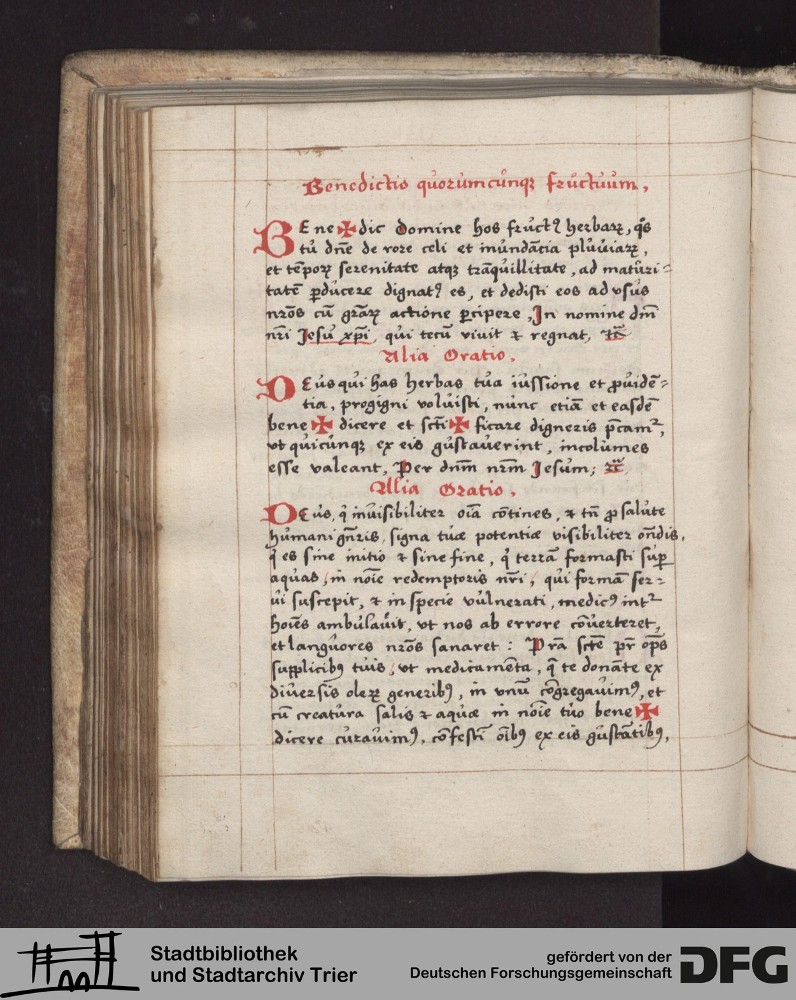 Benedictio quorumcunqꝫ fructuum.
BEne ✠ dic Domine hos fructꝰ herbaꝝ, qͦs
tu dn̄e de rore celi et inundācia pluuiaꝝ,
et tēpoꝝ serenitate atqꝫ trāquillitate, ad maturi⸗
tatē ꝑducere dignatꝰ es, et dedisti eos ad vsus
nr̄os cū gr̄aꝝ actione ꝑcipere, In nomine dn̄i
nr̄i Jesu xp̄i, qui tecū viuit ⁊ regnat,
Alia Oratio.
DEus qui has herbas tua iussione et ꝓuidē⸗
tia, progigni voluisti, nunc etiā et easdē
bene ✠ dicere et sc̄ti ✠ ficare digneris p̄camᷣ,
vt quicunqꝫ ex eis gustauerint, incolumes
esse valeant, Per dn̄m nr̄m Jesum;
Alia Oratio.
DEus, qͥ inuisibiliter oīa cōtines, ⁊ tn̄ ꝓ salute
humani gn̄ris, signa tuæ potentiæ visibiliter on̄dis,
qͥ es sine initio ⁊ sine fine, qͥ terrā formasti suꝑ
aquas, in noīe redemptoris nr̄i, qui formā ser⸗
ui suscepit, ⁊ in specie vulnerati, medicꝰ intᷣ
hoīes ambulauit, vt nos ab errore cōuerteret,
et languores nr̄os sanaret: Pr̄a sc̄te pr̄ op̄s
supplicibꝰ tuis, vt medicamēta, q̄ te donāte ex
diuersis oleꝝ generibꝰ, in vnū cōgregauimꝰ, et
cū creatura salis ⁊ aquæ in noīe tuo bene ✠
dicere curauimꝰ, cōfestī oībꝰ ex eis gustātibꝰ,
Stadtbibliothek
und Stadtarchiv Trier
gefördert von der
Deutschen Forschungsgemeinschaft
DFG